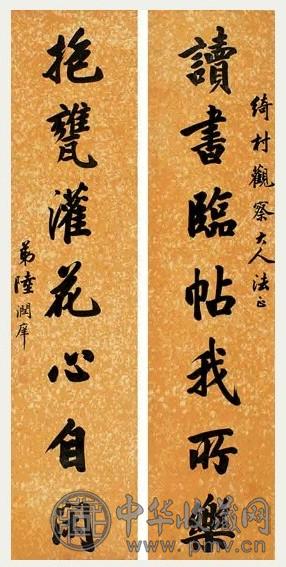 綺村觀察大人法正
讀書臨帖我所樂
抱甕灌花心自閒
弟陸潤庠
中华收藏网
www.pmv.cn